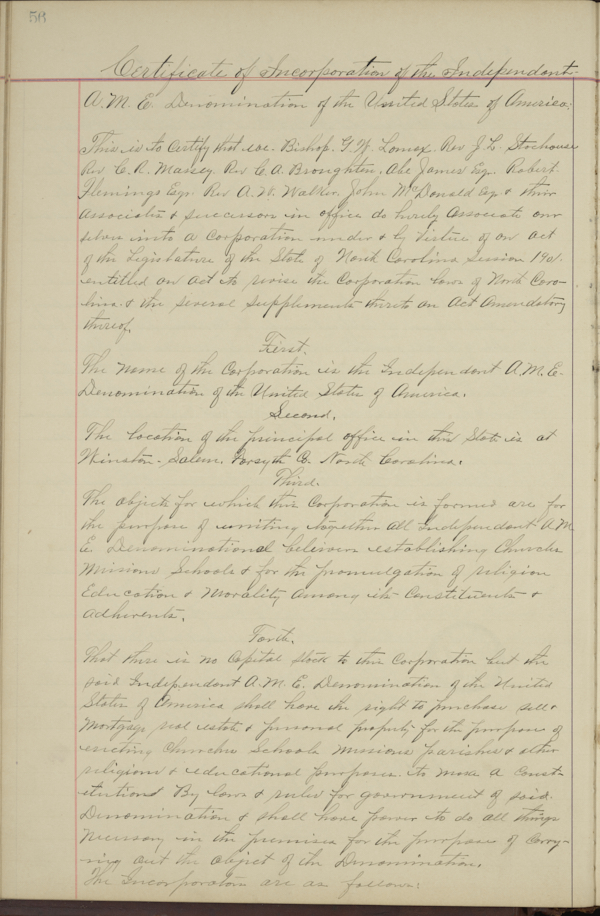 58
Certificate of Incorporation of the Independant
A. M. E. Denomination of the United States of America.
This is to Certify that we. Bishop. G. W. Lomax. Rev J. L. Stochouse
Rev C. R. Massey. Rev C. A. Broughton. Abe James Esq. Robert.
Flemings Esqr. Rev A. W. Walker. John McDonald Esq & their
Associates & successors in office do hereby Associate our
selves into a Corporation under & by Virtue of an act
of the Legislature of the State of North Carolina Session 1901.
entitled an act to revise the Corporation laws of North Caro-
lina & the several Supplements thereto an Act Amendatory
thereof.
First.
The Name of the Corporation is the Independant A. M. E.
Denomination of the United States of America.
Second.
The location of the principal office in this State is at
Winston-Salem. Forsyth Co. North Carolina.
Third.
The objects for which this Corporation is formed are for
the purpose of uniting together all Independant A. M.
E. Denominational believers establishing Churches
Missions Schools & for the promulgation of religion
Education & Morality Among its Constituents &
adherents.
Forth.
That there is no Capital stock to this Corporation but the
said Independant A. M. E. Denomination of the United
States of America shall have the right to purchase sell &
Mortgage real estate & personal property for the purpose of
erecting Churches Schools Missions parishes & other
religious & educational purposes to make a Const-
itutions By laws & rules for government of said
Denomination & shall have power to do all things
Necessary in the premises for the purposes of Carry-
ing out the object of the Denomination.
The Incorporators are as follows: